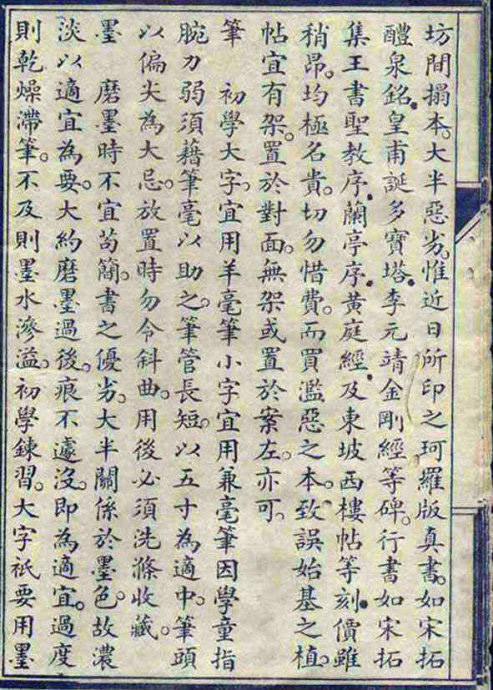 坊間搨本。大半惡劣。惟近日所印之珂羅版真書。如宋拓
醴泉銘。皇甫誕多寶塔。李元靖金剛經等碑。行書如宋拓
集王書聖教序。蘭亭序。黃庭經。及東坡西樓帖等刻。價雖
稍昂。均極名貴。切勿惜費。而買濫惡之本。致誤始基之植。
帖宜有架。置於對面。無架或置於案左。亦可。
筆　初學大字。宜用羊毫筆小字宜用兼毫筆因學童指
腕力弱須藉筆毫以助之。筆管長短。以五寸為適中。筆頭
以偏尖為大忌。放置時勿令斜曲。用後必須洗滌收藏。
墨　磨墨時不宜苟簡。書之優劣。大半關係於墨色。故濃
淡以適宜為要。大約磨墨過後。痕不遽沒。即為適宜。過度
則乾燥滯筆。不及則墨水滲溢。初學鍊習。大字祇要用墨